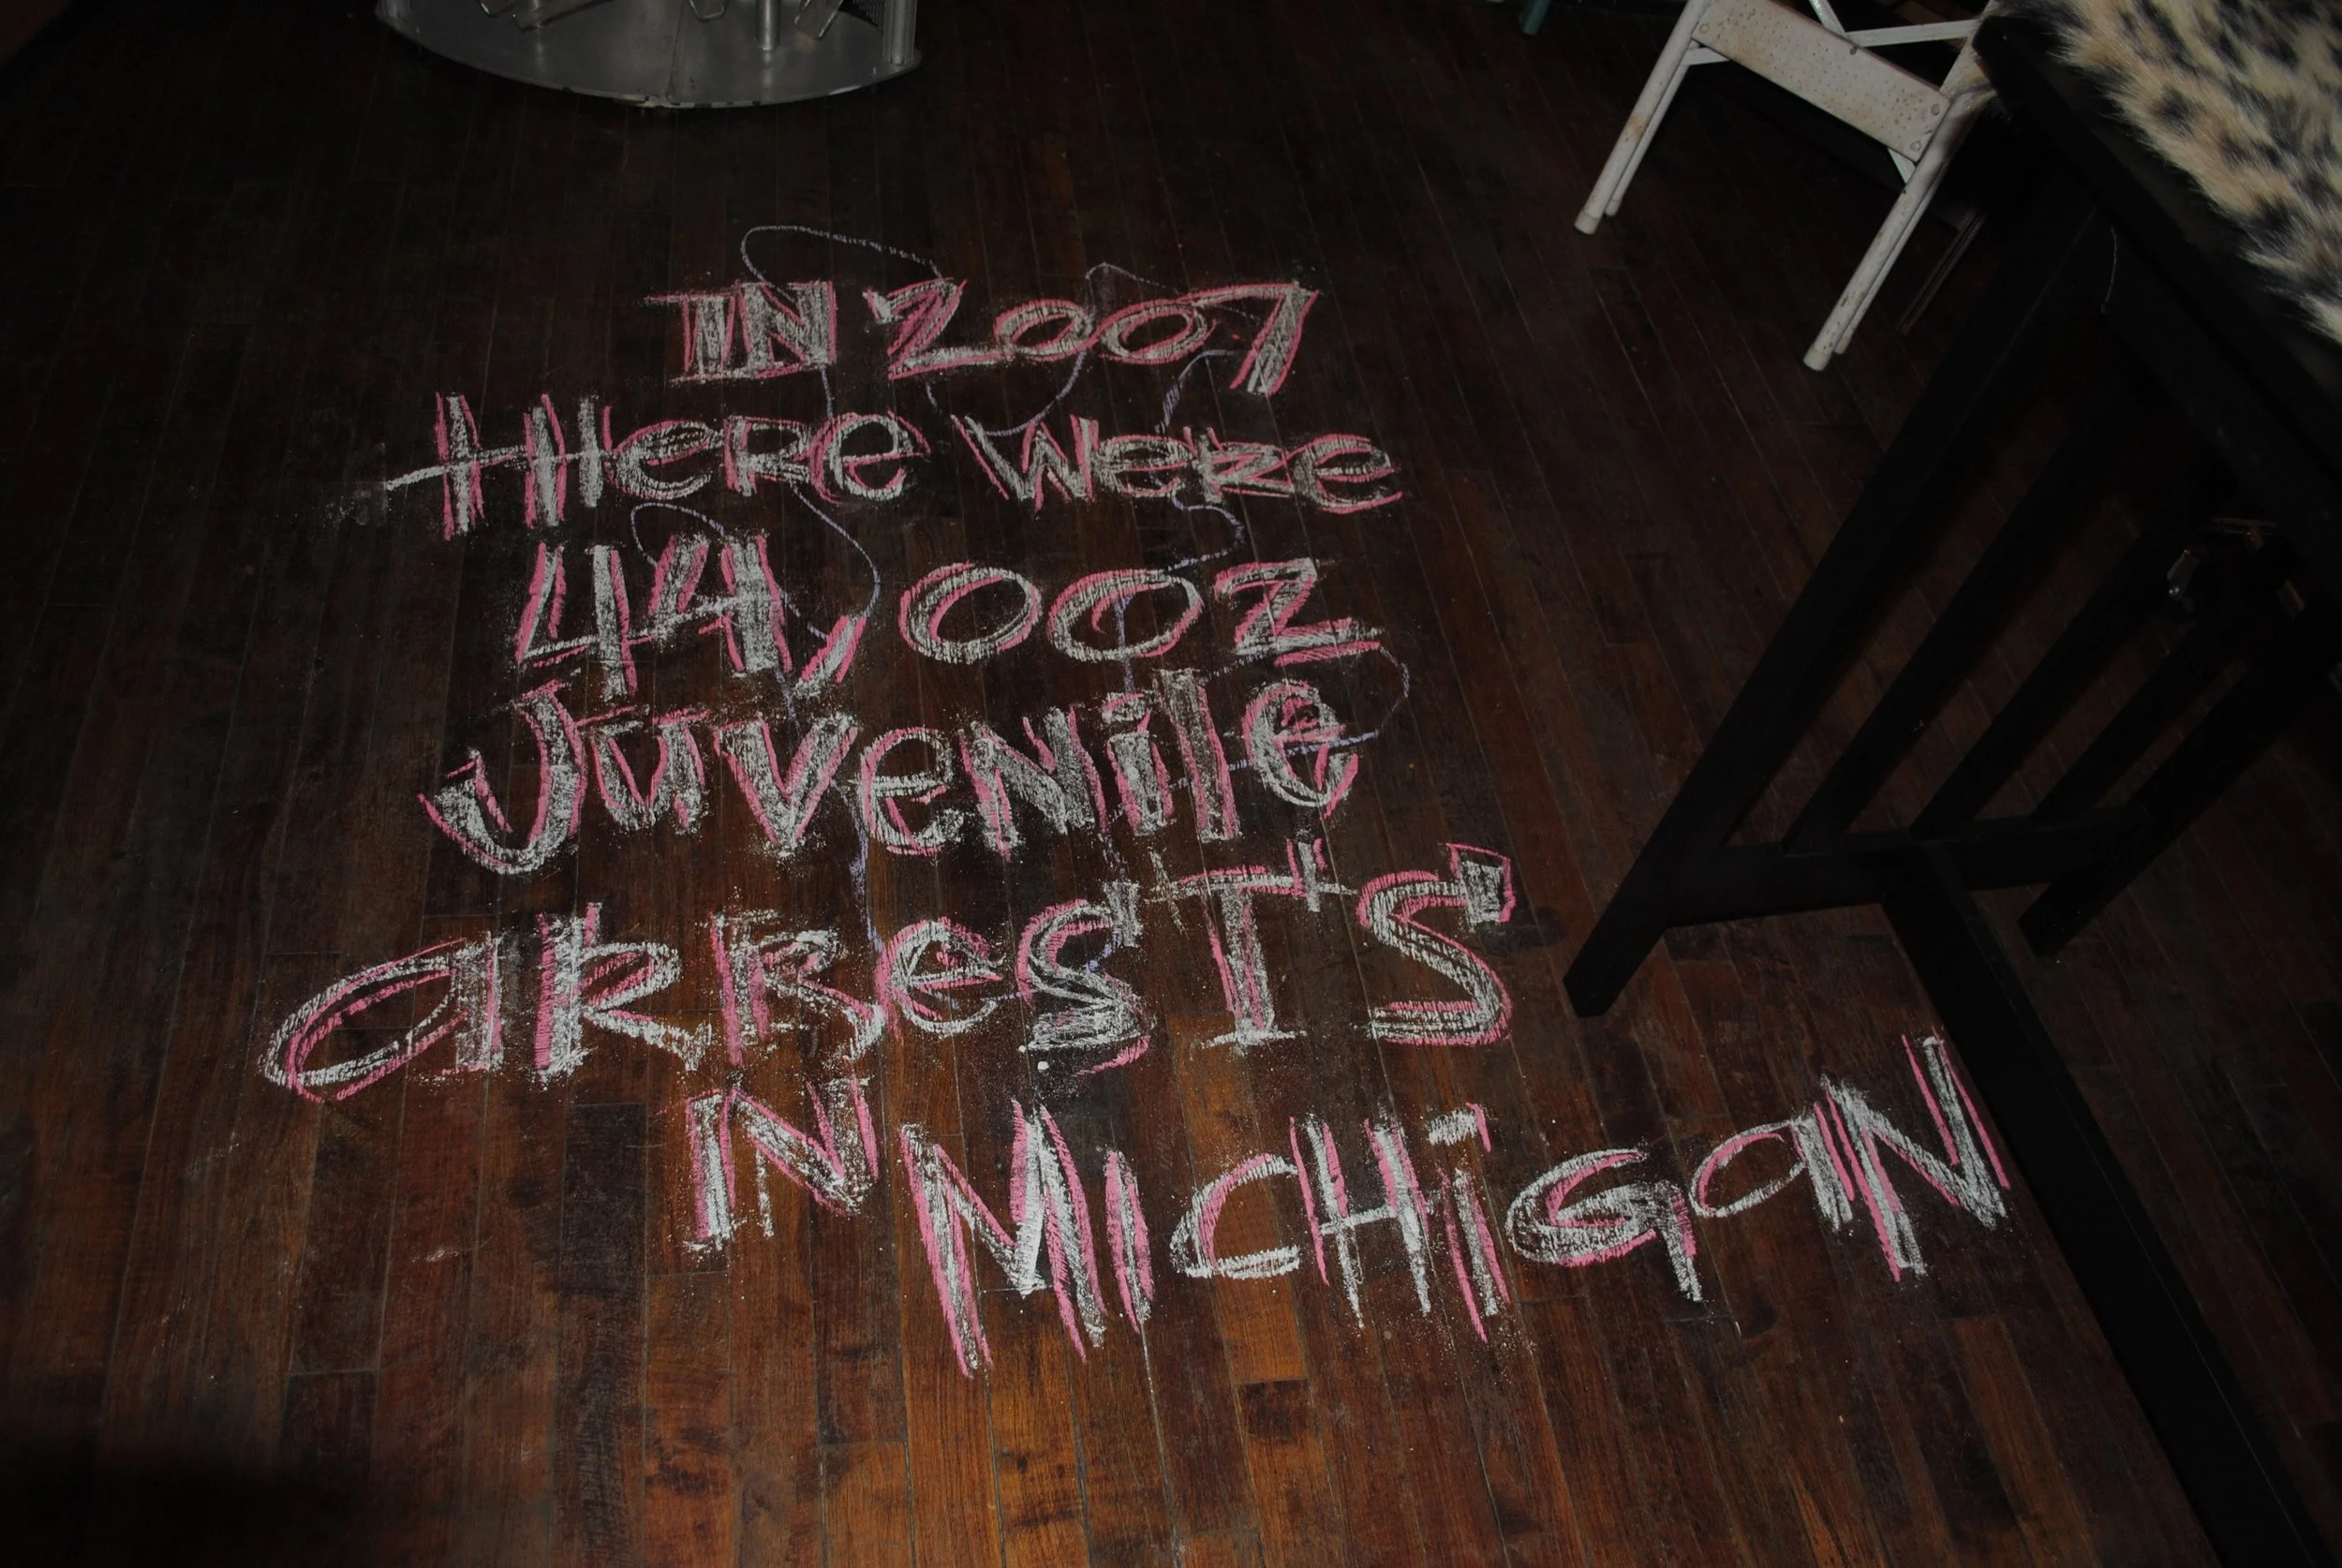 IN 2007
tHeRe WeRe
44,002
JuveNile
aRResTS
N MICHiGaN